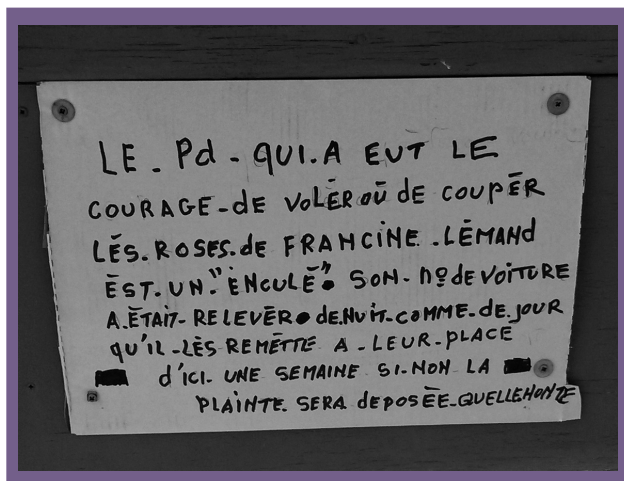 LE. Pd - QUI.A EUT LE
COURAGE-dE VOLĒR OŪ dE COUPĒR
LĒS.ROSES.de FRANCINE.LĒMANd
ĒST.UN."ĒNCULĒ". SON-nº de VOITURE
A.ĒTAIT-RELEVĒR.de.NUIT-COMME-de.JOUR
qu'IL-LĒS REMĒTTE A-LEUR-PLACE
d'ICI-UNE SEMAINE SI-NON LA
PLAINTE.SERA dEPOSĒE-QUELLEHONTE